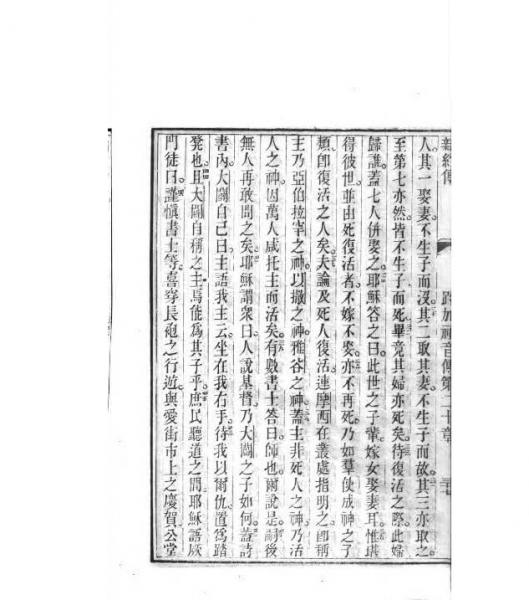 路加福音傳第二十章
人其一娶妻。不生子而没。其二取其妻。不生子而故。其三亦取之。
至第七亦然。皆不生子而死。畢竟其婦亦死矣。待復活之際。此婦
歸誰。蓋七人併娶之。耶穌答之曰。此世之子輩。嫁女娶妻耳。惟堪
得彼世。並由死復活者。不嫁不娶。亦不再死。乃如羣使成神之子
類。卽復活之人矣。夫論及死人復活。連摩西在叢處指明之。卽稱
主乃亞伯拉宰之神。以撒之神。雅谷之神。蓋主非死人之神。乃活
人之神。因萬人咸托主而活矣。有數書士答曰。師也。爾說是。嗣後
無人再敢問之矣。耶穌謂眾曰。人說基督乃大闢之子如何。蓋詩
書內。大闢自己曰。主語我主云。坐在我右手。待我以爾仇。置爲踏
凳也。且大闢自稱之主。焉能爲其子乎。庶民聽道之間。耶穌語厥
門徒曰。謹慎書士等。喜穿長袍之行遊。與愛街市上之慶賀。公堂